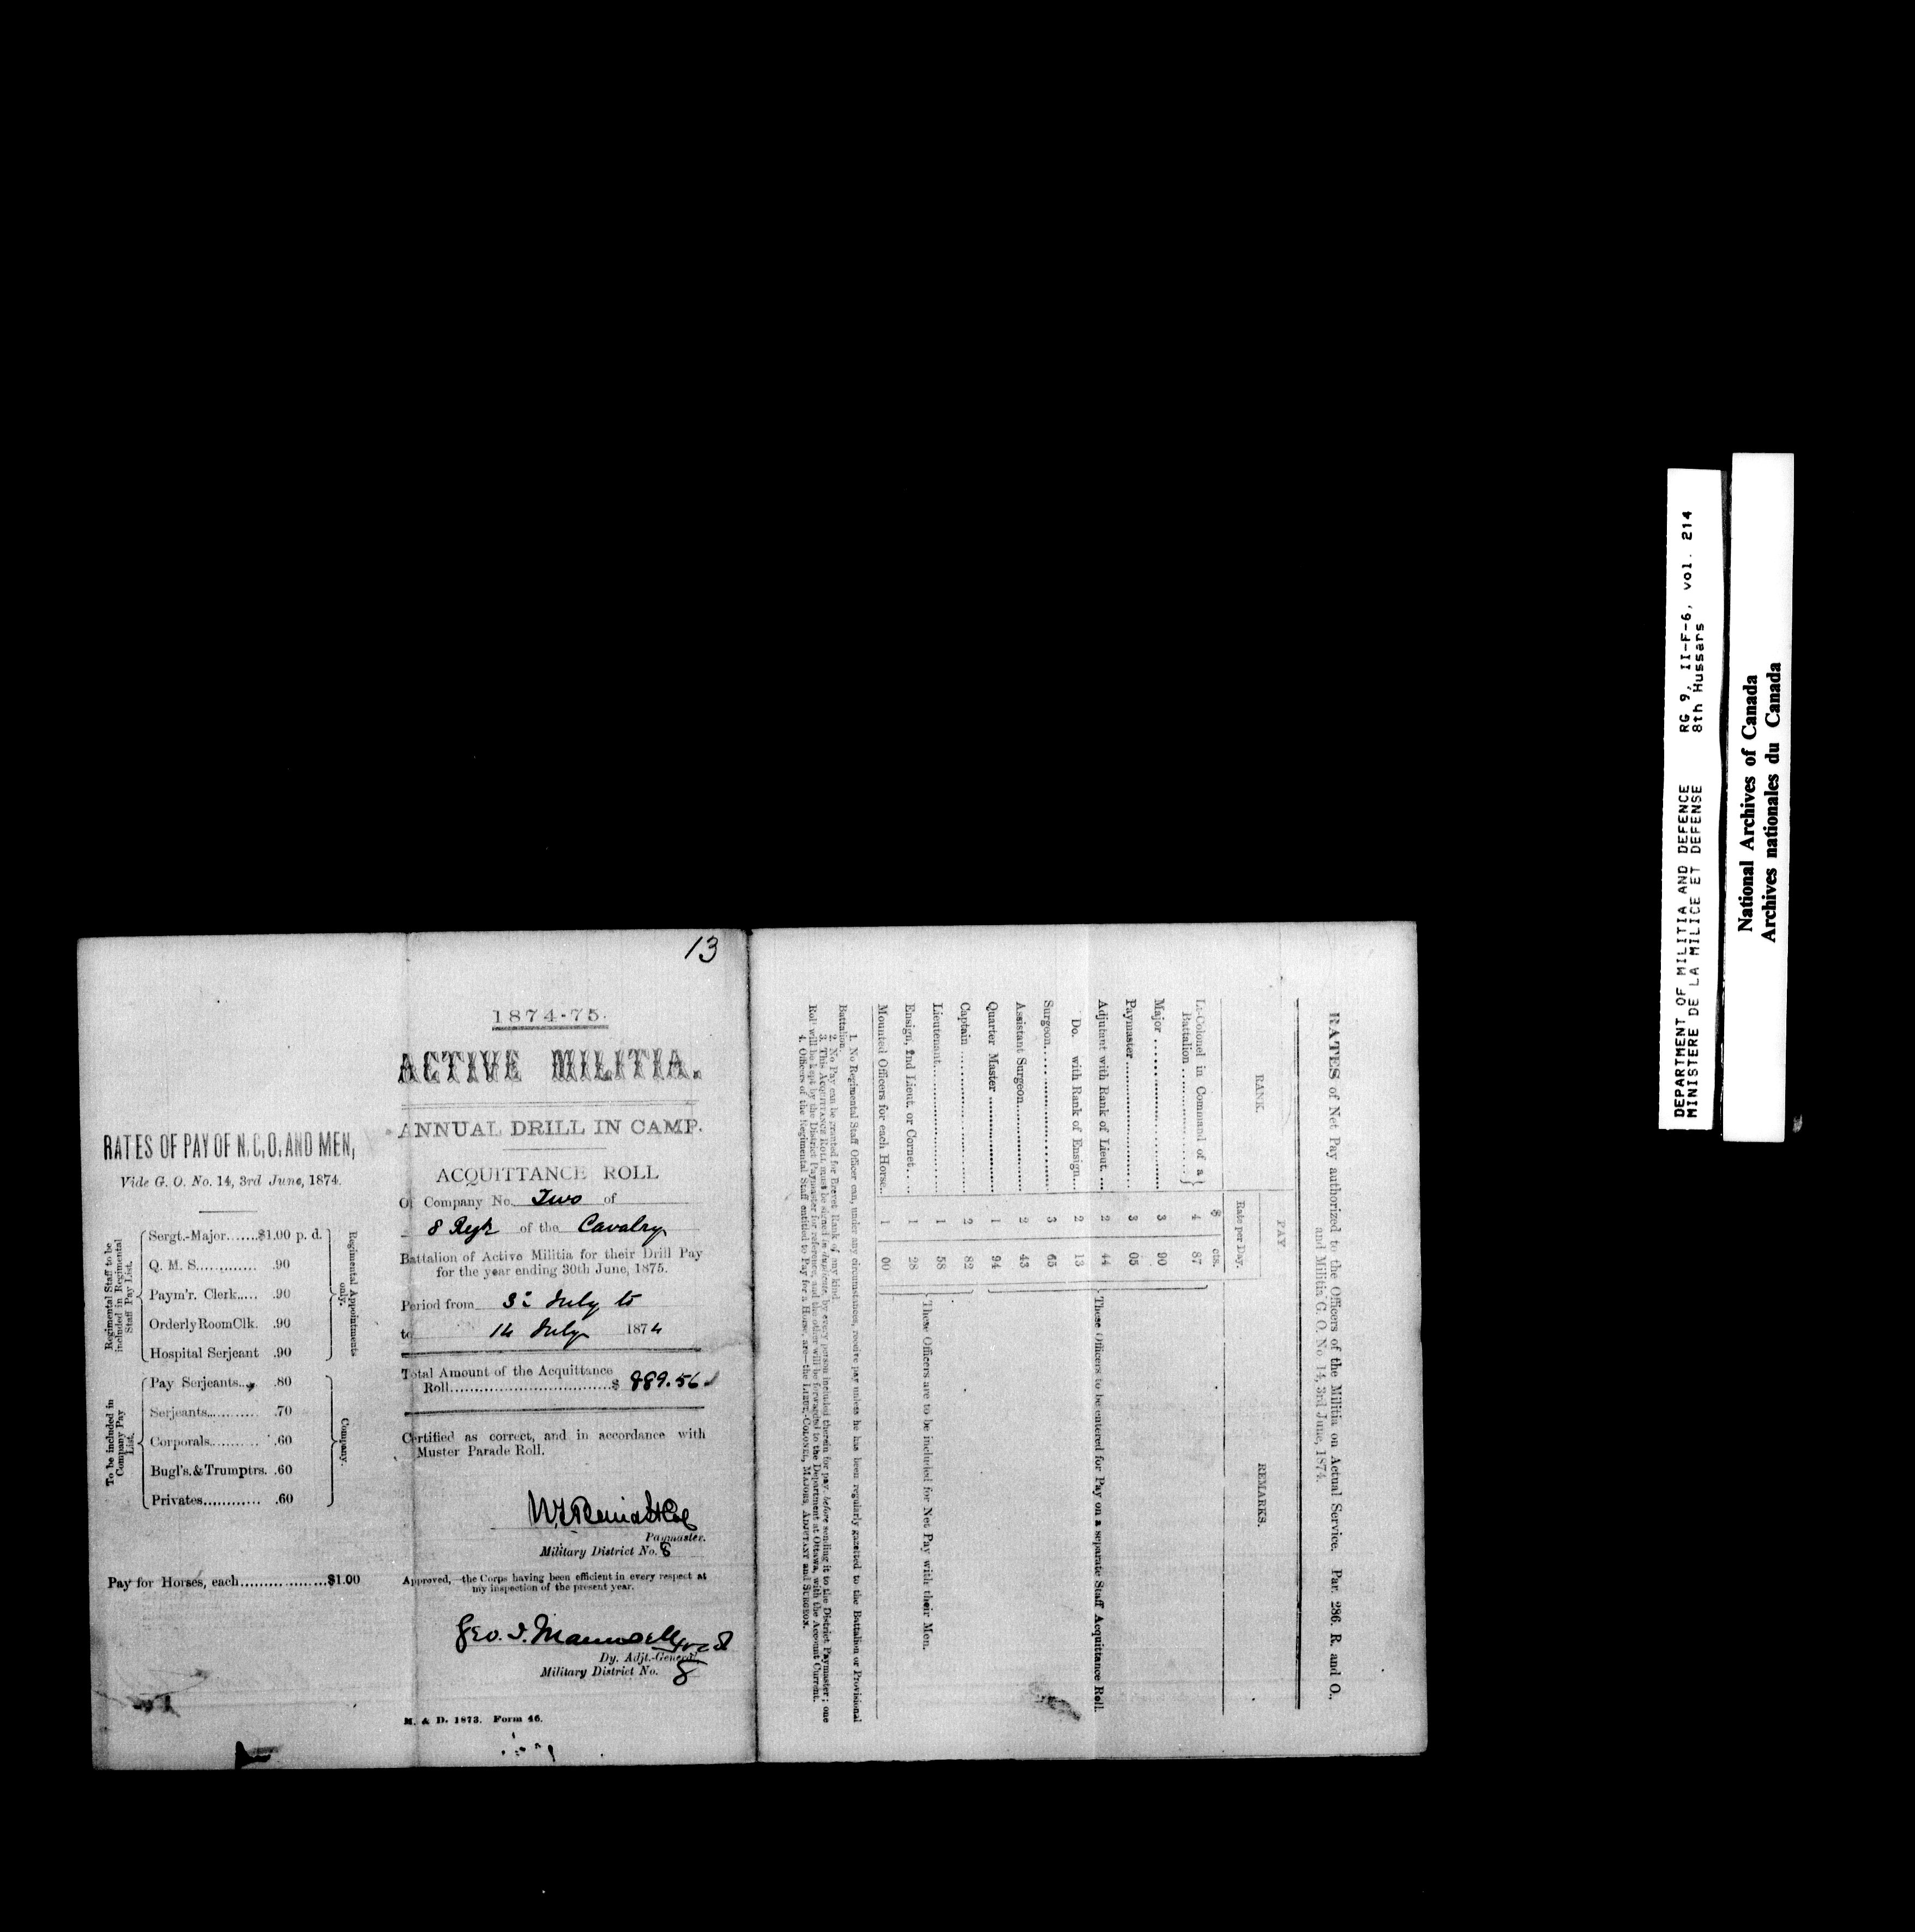 13
RATES OF PAY OF N. C. O. AND MEN,
Vide G. O. No. 14, 3rd June, 1874.
Regimental Staff to be included in Regimental Staff Pay List.
Sergt.-Major.......$1.00 p. d.
Q. M. S............ .90
Paym'r. Clerk..... .90
Orderly Room Clk. .90
Hospital Serjeant .90
Regimental Appointments only.
To be included in Company Pay List.
Pay Serjeants... .80
Serjeants........... .70
Corporals.......... .60
Bugl's. & Trumptrs. .60
Privates............ .60
Company.
Pay for Horses, each..................$1.00
1874-75.
ACTIVE MILITIA.
ANNUAL DRILL IN CAMP.
ACQUITTANCE ROLL
Of Company No. Two of
8 Regt of the Cavalry
Battalion of Active Militia for their Drill Pay
for the year ending 30th June, 1875.
Period from 3d July to
to 14 July 1874
Total Amount of the Acquittance
Roll.................................$ 889.56
Certified as correct, and in accordance with
Muster Parade Roll.
Paymaster.
Military District No. 8
Approved,—the Corps having been efficient in every respect at
my inspection of the present year.
Geo. J. Maunsell
Dy. Adjt.-General
Military District No. 8
M. & D. 1873. Form 46.
RATES of Net Pay authorized to the Officers of the Militia on Actual Service. Par. 286, R. and O.,
and Militia G. O. No 14, 3rd June, 1874.
RANK.
PAY
Rate per Day.
REMARKS.
$ cts.
Lt-Colonel in Command of a Battalion.......... 4 87
Major.................. 3 90
Paymaster.................. 3 05
Adjutant with Rank of Lieut. ... 2 44
Do. with Rank of Ensign... 2 13
Surgeon.................. 3 65
Assistant Surgeon............ 2 43
Quarter Master.................. 1 94
These Officers to be entered for Pay on a separate Staff Acquittance Roll.
Captain.................. 2 82
Lieutenant.................. 1 58
Ensign, 2nd Lieut. or Cornet.... 1 28
Mounted Officers for each Horse... 1 00
These Officers are to be included for Net Pay with their Men.
1. No Regimental Staff Officer can, under any circumstances, receive pay unless he has been regularly gazetted to the Battalion or Provisional
Battalion.
2. No Pay can be granted for Brevet Rank of any kind.
3. This ACQUITTANCE ROLL must be signed in duplicate, by every person included therein for pay, before sending it to the District Paymaster; one
Roll will be kept by the District Paymaster for reference, and the other will be forwarded to the Department at Ottawa, with the Account Current.
4. Officers of the Regimental Staff entitled to Pay for a Horse, are—the LIEUT.-COLONEL, MAJORS, ADJUTANT and SURGEON.
DEPARTMENT OF MILITIA AND DEFENCE RG 9, II-F-6, vol. 214
MINISTERE DE LA MILICE ET DEFENSE 8th Hussars
National Archives of Canada
Archives nationales du Canada